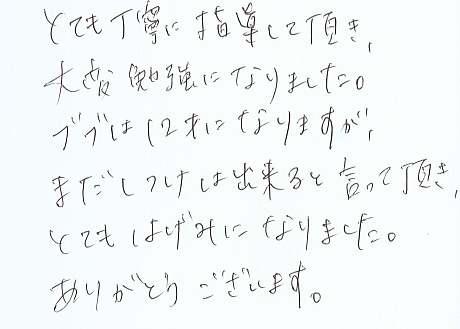 とても丁寧に指導して頂き、
大変勉強になりました。
ブブは12才になりますが、
まだしつけは出来ると言って頂き、
とてもはげみになりました。
ありがとうございます。